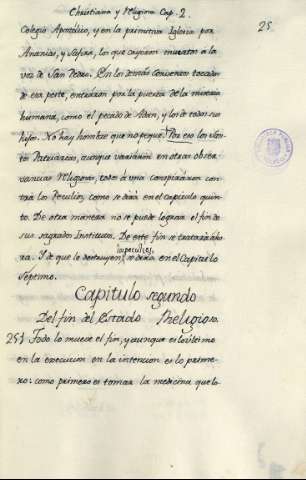 Christiana y Religiosa Cap. 2.
25
Colegio Apostolico, y en la primitiva Iglesia por
Ananias, y Safira, los que cayeron muertos a la
voz de San Pedro. En los demás Conventos tocados
de esa peste, entraron por la puerta de la miseria
humana, como el pecado de Adan, y los de todos sus
hijos. No hay hombre que no peque. Por eso los San-
tos Patriarcas, aunque variaron en otras obser-
vancias Religiosas, todos á una conspiraron con-
tra los Peculios, como se dirá en el capitulo quin-
to. De otra manera no se puede lograr el fin de
sus sagrados Institutos. De este fin se tratará áho-
ra. Y de que lo destruyen los peculios, se dirá en el Capitulo
Septimo.
Capitulo segundo
Del fin del Estado Religioso.
251 Todo lo mueve el fin, y aunque es lo último
en la execucion en la intencion es lo prime-
ro: como primero es tomar la medicina que lo